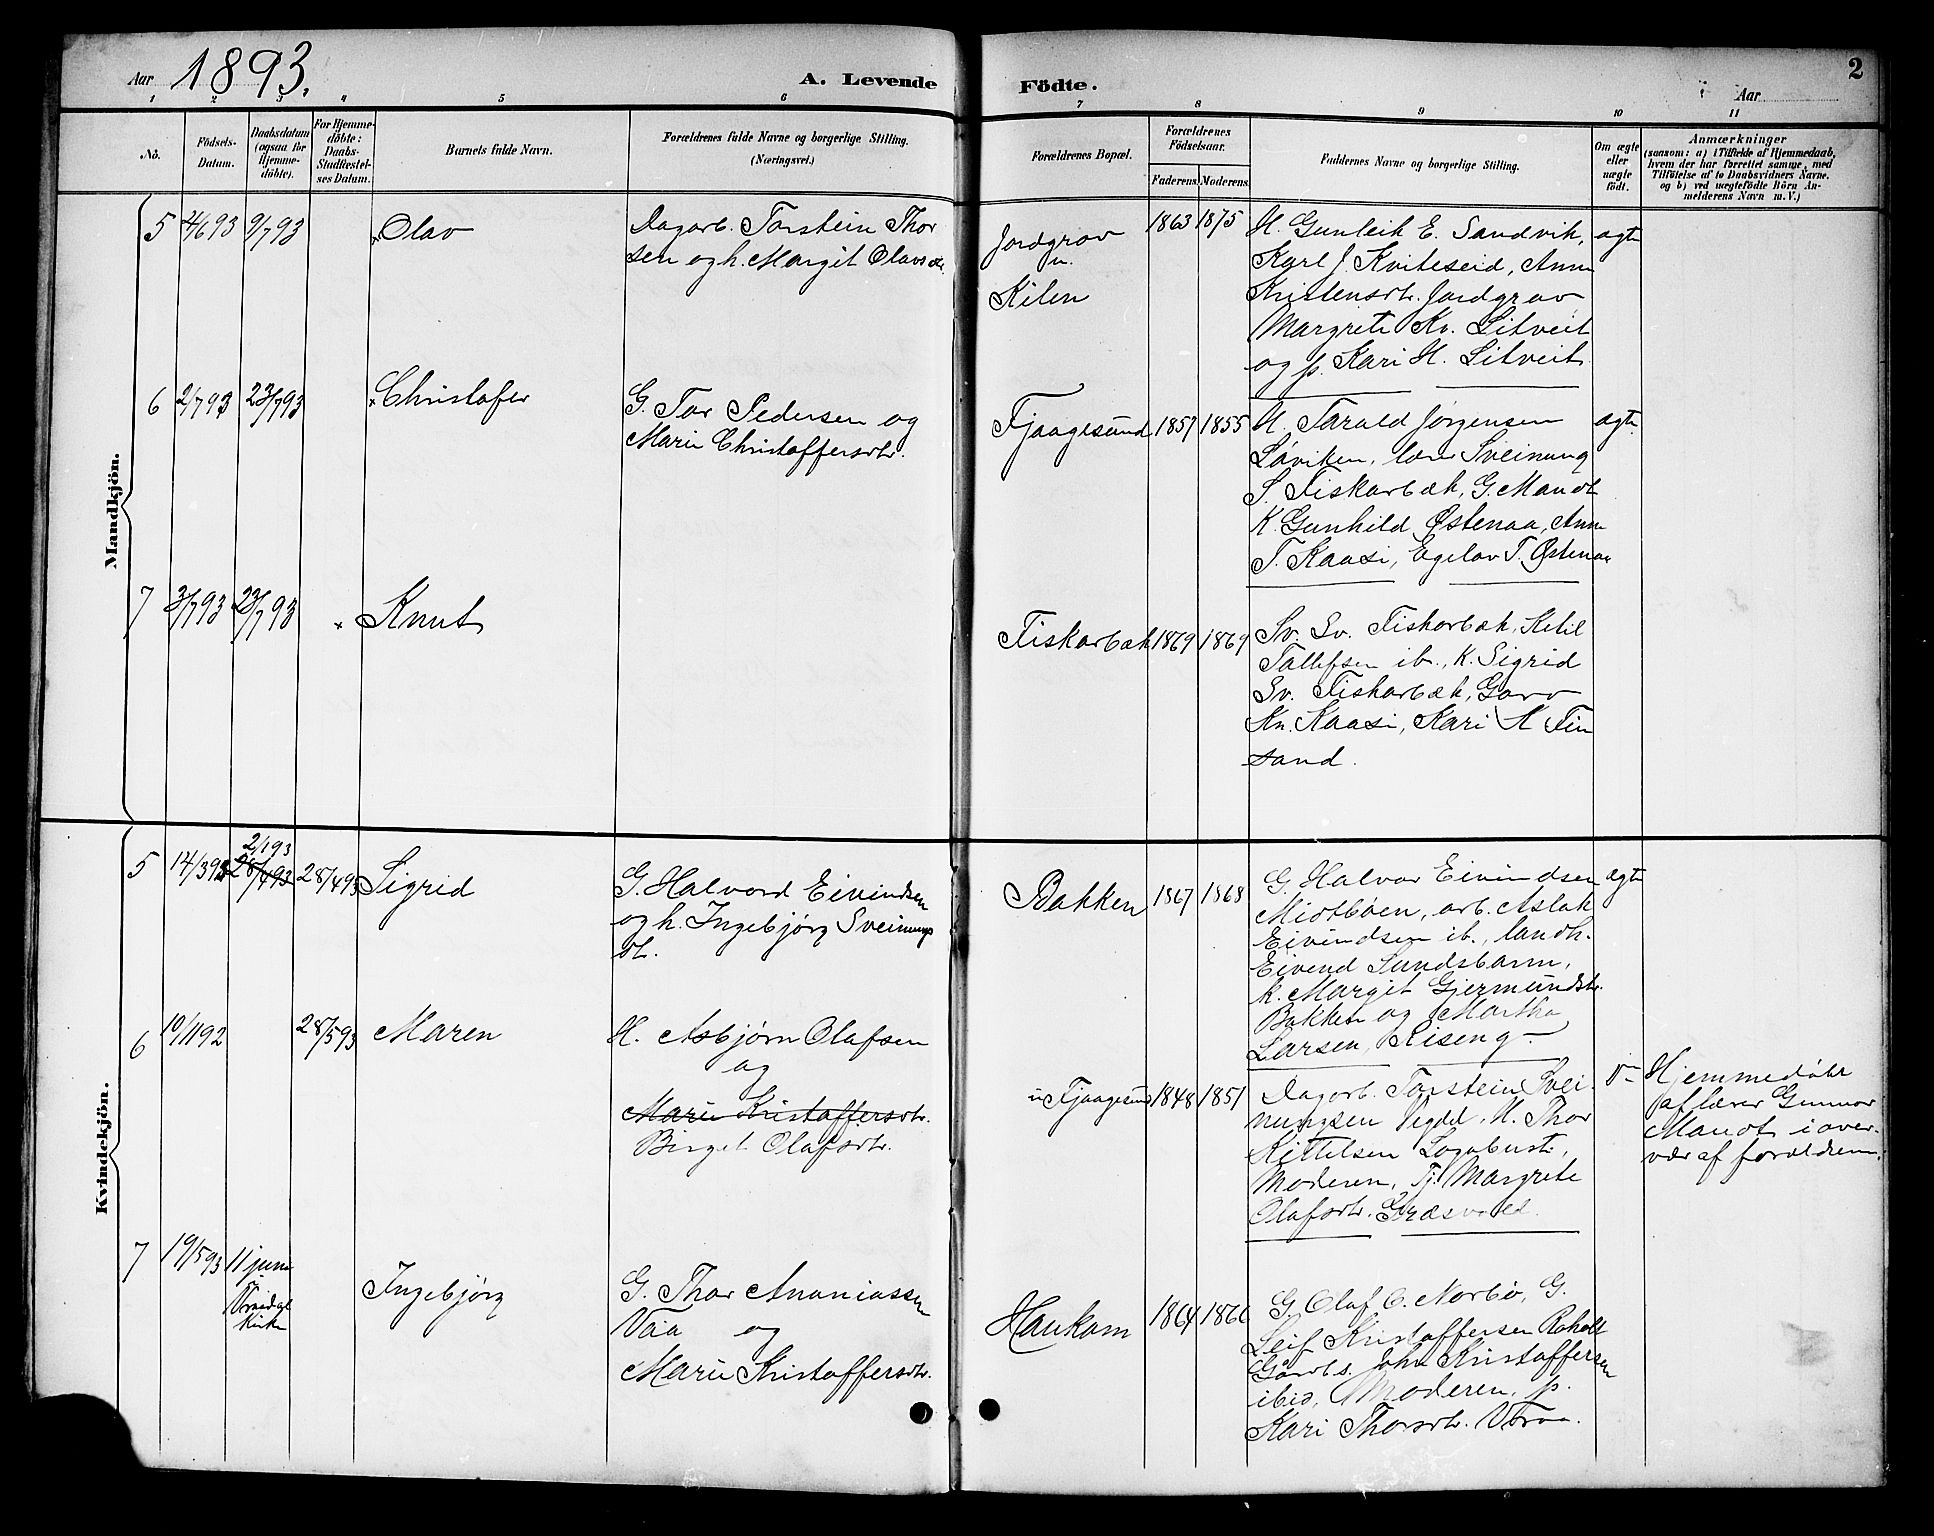 Aar 1893.
A. Levende
Födte.
Aar
2
1 2 3 4 5 6 7 8 9 10 11
No.
Födsels-
Datum.
Daabsdatum
(ogsaa for
Hjemme-
döbte).
For Hjemme-
döbte:
Daabs-
Stadfæstel-
ses Datum.
Barnets fulde Navn.
Forældrenes fulde Navne og borgerlige Stilling.
(Næringsvei.)
Forældrenes Bopæl.
Forældrenes
Födselsaar.
Faderens. Moderens.
Faddernes Navne og borgerlige Stilling.
Om ægte
eller
uægte
födt.
Anmærkninger
(saasom: a) i Tilfælde af Hjemmedaab,
hvem der har forrettet samme, med
Tilföielse af to Daabsvidners Navne.
og b) ved uægtefödte Börn An-
melderens Navn m. V.)
Mandkjön.
5 2/6 93 9/7 93 Olav
Dagarb. Torstein Thor
sen og h. Margit Olavsdr.
Jordgrav
u.
Kilen
1863 1875
U. Gunleik E. Sandvik,
Karl J. Kviteseid, Anne
Kristensdtr. Jordgrav
Margrete Kn. Litveit
og p. Kari H. Litveit
ægte
6 2/7 93 23/7 93 Christofer
G. Tor Pedersen og
Marie Christoffersdtr.
Fjaagesund 1857 1855
U. Tarald Jørgensen
Løviken, lærer Sveinung
S. Fiskarbæk, G. Mandt
K. Gunhild Østenaa, Anne
T. Kaasi, Egelav T. Østenaa
ægte
7 3/7 93 23/7 93 Knut
Fiskarbæk 1869 1869
Sv. Sv. Fiskarbæk, Ketil
Tallefsen ib., K. Sigrid
Sv. Fiskarbæk, Garo
Kn. Kaasi, Kari K Fin
sand.
Kvindekjön.
5 14/3 93 2/1 93
28/4 93 28/4 93 Sigrid
G. Halvord Eivindsen
og h. Ingebjørg Sveinungs
dt.
Bakken 1867 1868
G. Halvor Eivindsen
Midtbøen, arb. Aslak
Eivindsen ib., landh.
Eivend Sundsbarm,
k. Margit Gjermundsdtr.
Bakken og Martha
Larsen, Riseng
ægte
6 10/11 92 28/5 93 Maren
H. Asbjørn Olafsen
og
Marie Kristoffersdtr.
Birget Olafsdtr.
u Fjaagesund 1848 1851
Dagarb. Torstein Svei-
nungsen Vegdal, U. Thor
Kittelsen Logabust,
Moderen, Tj. Margrete
Olafsdtr. Græsvold.
Hjemmedøbt
af lærer Gunnar
Mandt i over-
vær af forældrene.
7 19/5 93 11 juni
i
Vraidal
kirke
Ingebjørg
G. Thor Ananiassen
Vaa og
Marie Kristoffersdtr.
Haukom 1864 1866
G. Olaf O. Norbø, G.
Leif Kristoffersen Roholt
Gårdbs. John Kristoffersen
ibid, Moderen, p.
Kari Thorsdtr. Vraa.